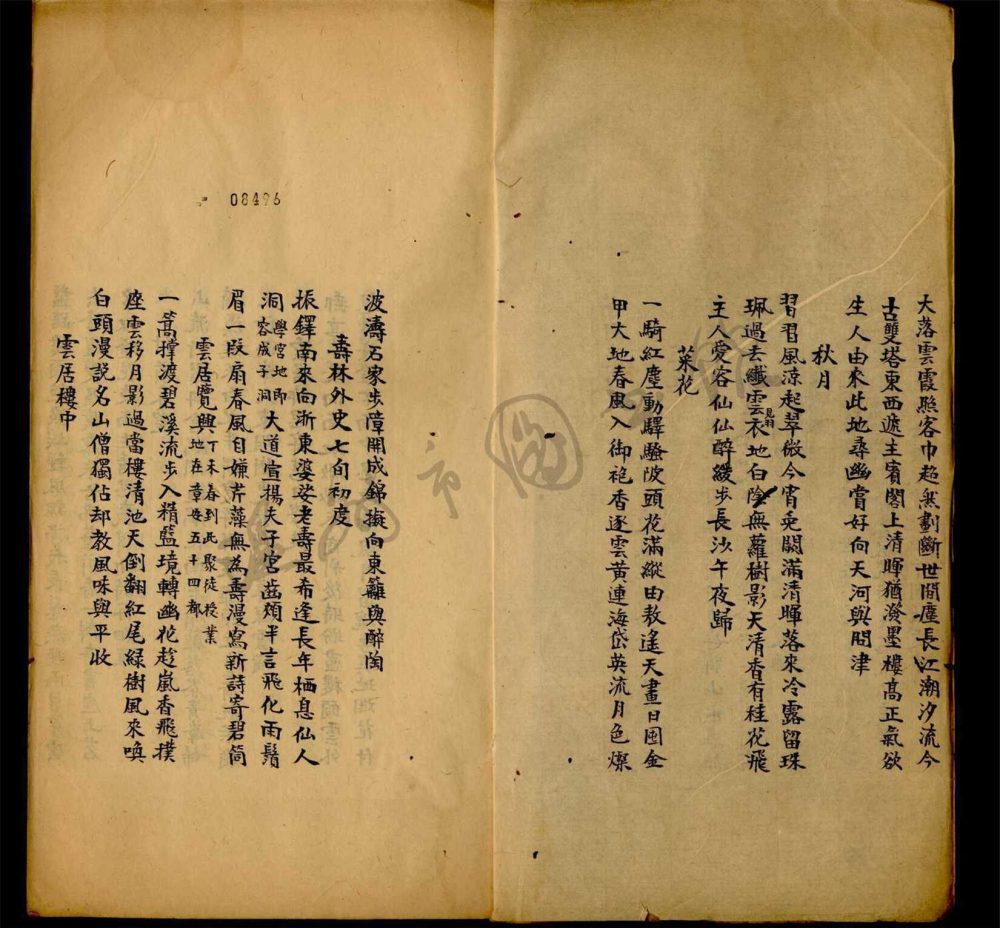 大落雲霞點客巾超然劃斷世間塵長江潮汐流今
古雙塔東西遞主賓閣上清暉猶潑墨樓高正氣欲
生人由來此地尋幽嘗好向天河與問津
秋月
習習風涼起翠微今宵兔闕滿清暉落來冷露留珠
珮過去纖雲衣地白陰無蘿樹影天清香有桂花飛
主人愛客仙仙醉緩步長沙午夜歸
菜花
一騎紅塵動驛騷陂頭花滿縱由敖遙天晝日囤金
甲大地春風入御袍香逐雲黃連海岱英流月色燦
08496
波濤石家步障開成錦擬向東籬與醉陶
壽林外史七旬初度
振鐸南來向浙東婆娑老壽最希逢長年栖息仙人
洞學宮地即容成子洞大道宣揚夫子宮齒頰半言飛化雨鬚
眉一段扇春風自嫌芹藻無為壽漫寫新詩寄碧筒
雲居覽興丁未春到此聚徒授業地在章安五十四都
一篙撐渡碧溪流步入精藍境轉幽花趁嵐香飛撲
座雲移月影過當樓清池天倒翻紅尾綠樹風來喚
白頭漫說名山僧獨佔却教風味與平收
雲居樓中